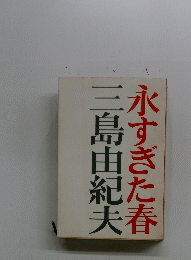 永すぎた春
三島由紀夫